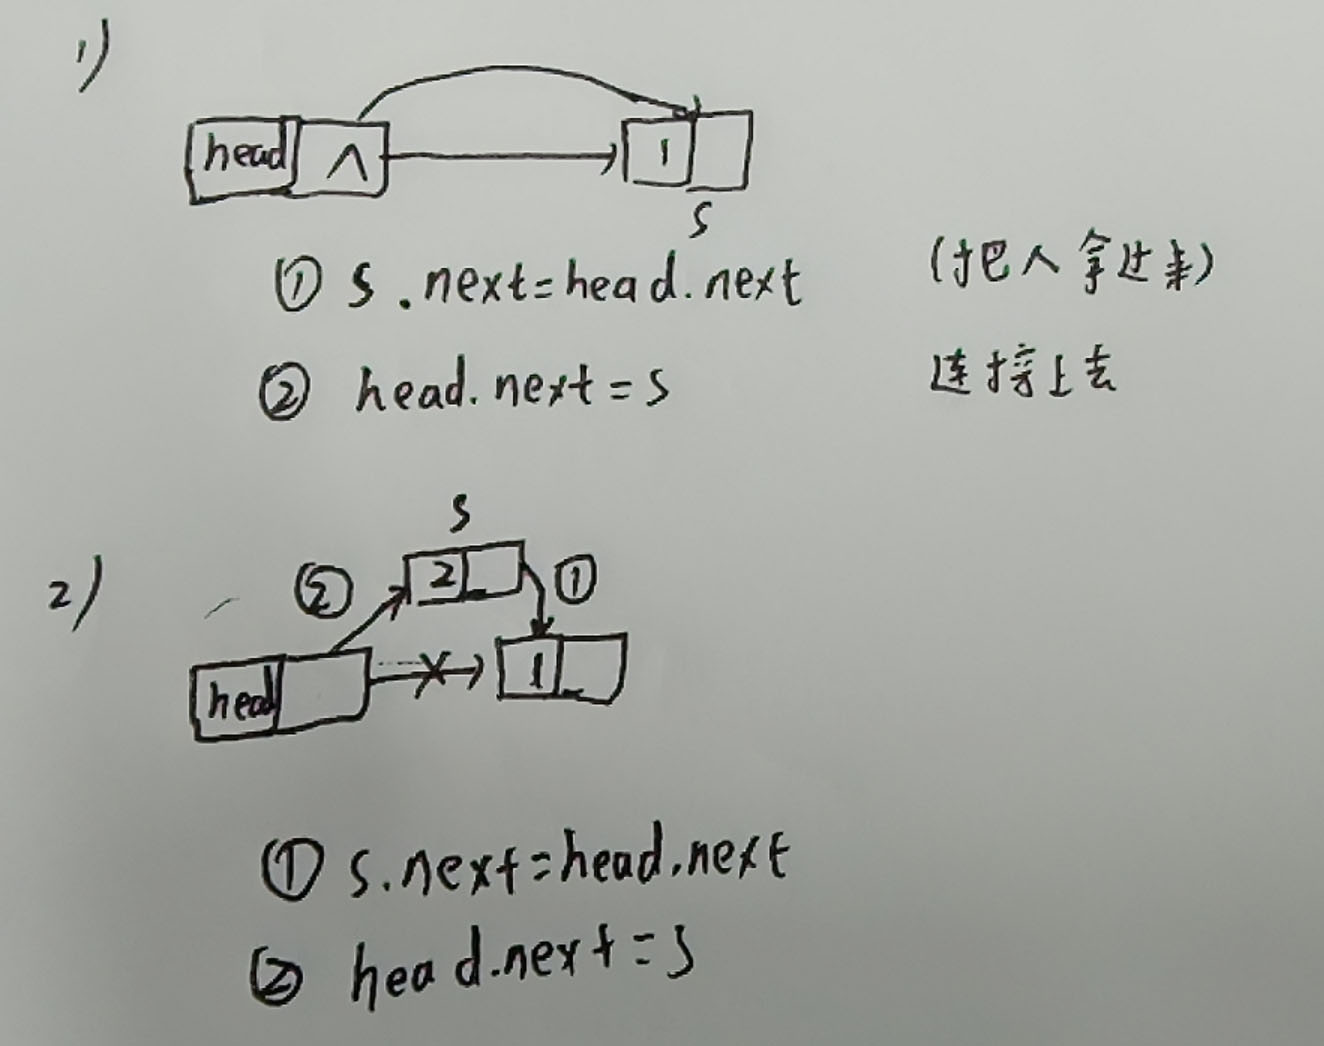 1)
head ∧ 1
s
① s.next=head.next (把∧拿过来)
② head.next=s 连接上去
s
2) ② 2 ①
head 1
① s.next=head.next
② head.next=s